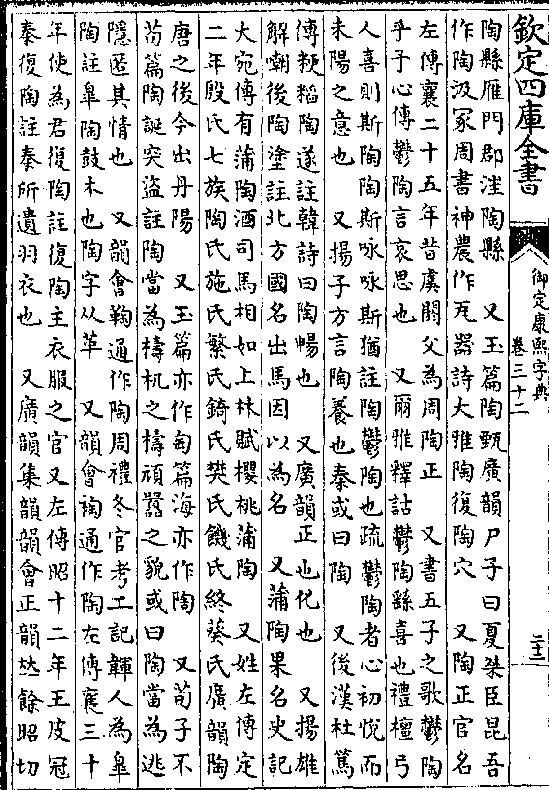 欽定四庫全書
御定康熙字典
卷三十二
二十二
陶縣雁門郡𣻌陶縣　又玉篇陶甄廣韻尸子曰夏桀臣昆吾
作陶汲冢周書神農作瓦器詩大雅陶復陶穴　又陶正官名
左傳襄二十五年昔虞閼父為周陶正　又書五子之歌鬱陶
乎予心傳鬱陶言哀思也　又爾雅釋詁鬱陶繇喜也禮檀弓
人喜則斯陶陶斯咏咏斯猶註陶鬱陶也疏鬱陶者心初悅而
未陽之意也　又揚子方言陶養也秦或曰陶　又後漢杜篤
傳粳稻陶遂註韓詩曰陶暢也　又廣韻正也化也　又揚雄
解嘲後陶塗註北方國名出馬因以為名　又蒲陶果名史記
大宛傳有蒲陶酒司馬相如上林賦櫻桃蒲陶　又姓左傳定
二年殷氏七族陶氏施氏繁氏錡氏樊氏饑氏終葵氏廣韻陶
唐之後今出丹陽　又玉篇亦作匋篇海亦作陶　又荀子不
苟篇陶誕突盜註陶當為檮杌之檮頑嚚之貌或曰陶當為逃
隱匿其情也　又韻會鞠通作陶周禮冬官考工記韗人為臯
陶註臯陶鼓木也陶字从革　又韻會裪通作陶左傳襄三十
年使為君復陶註復陶主衣服之官又左傳昭十二年王皮冠
秦復陶註秦所遺羽衣也　又廣韻集韻韻會正韻𠀤餘昭切